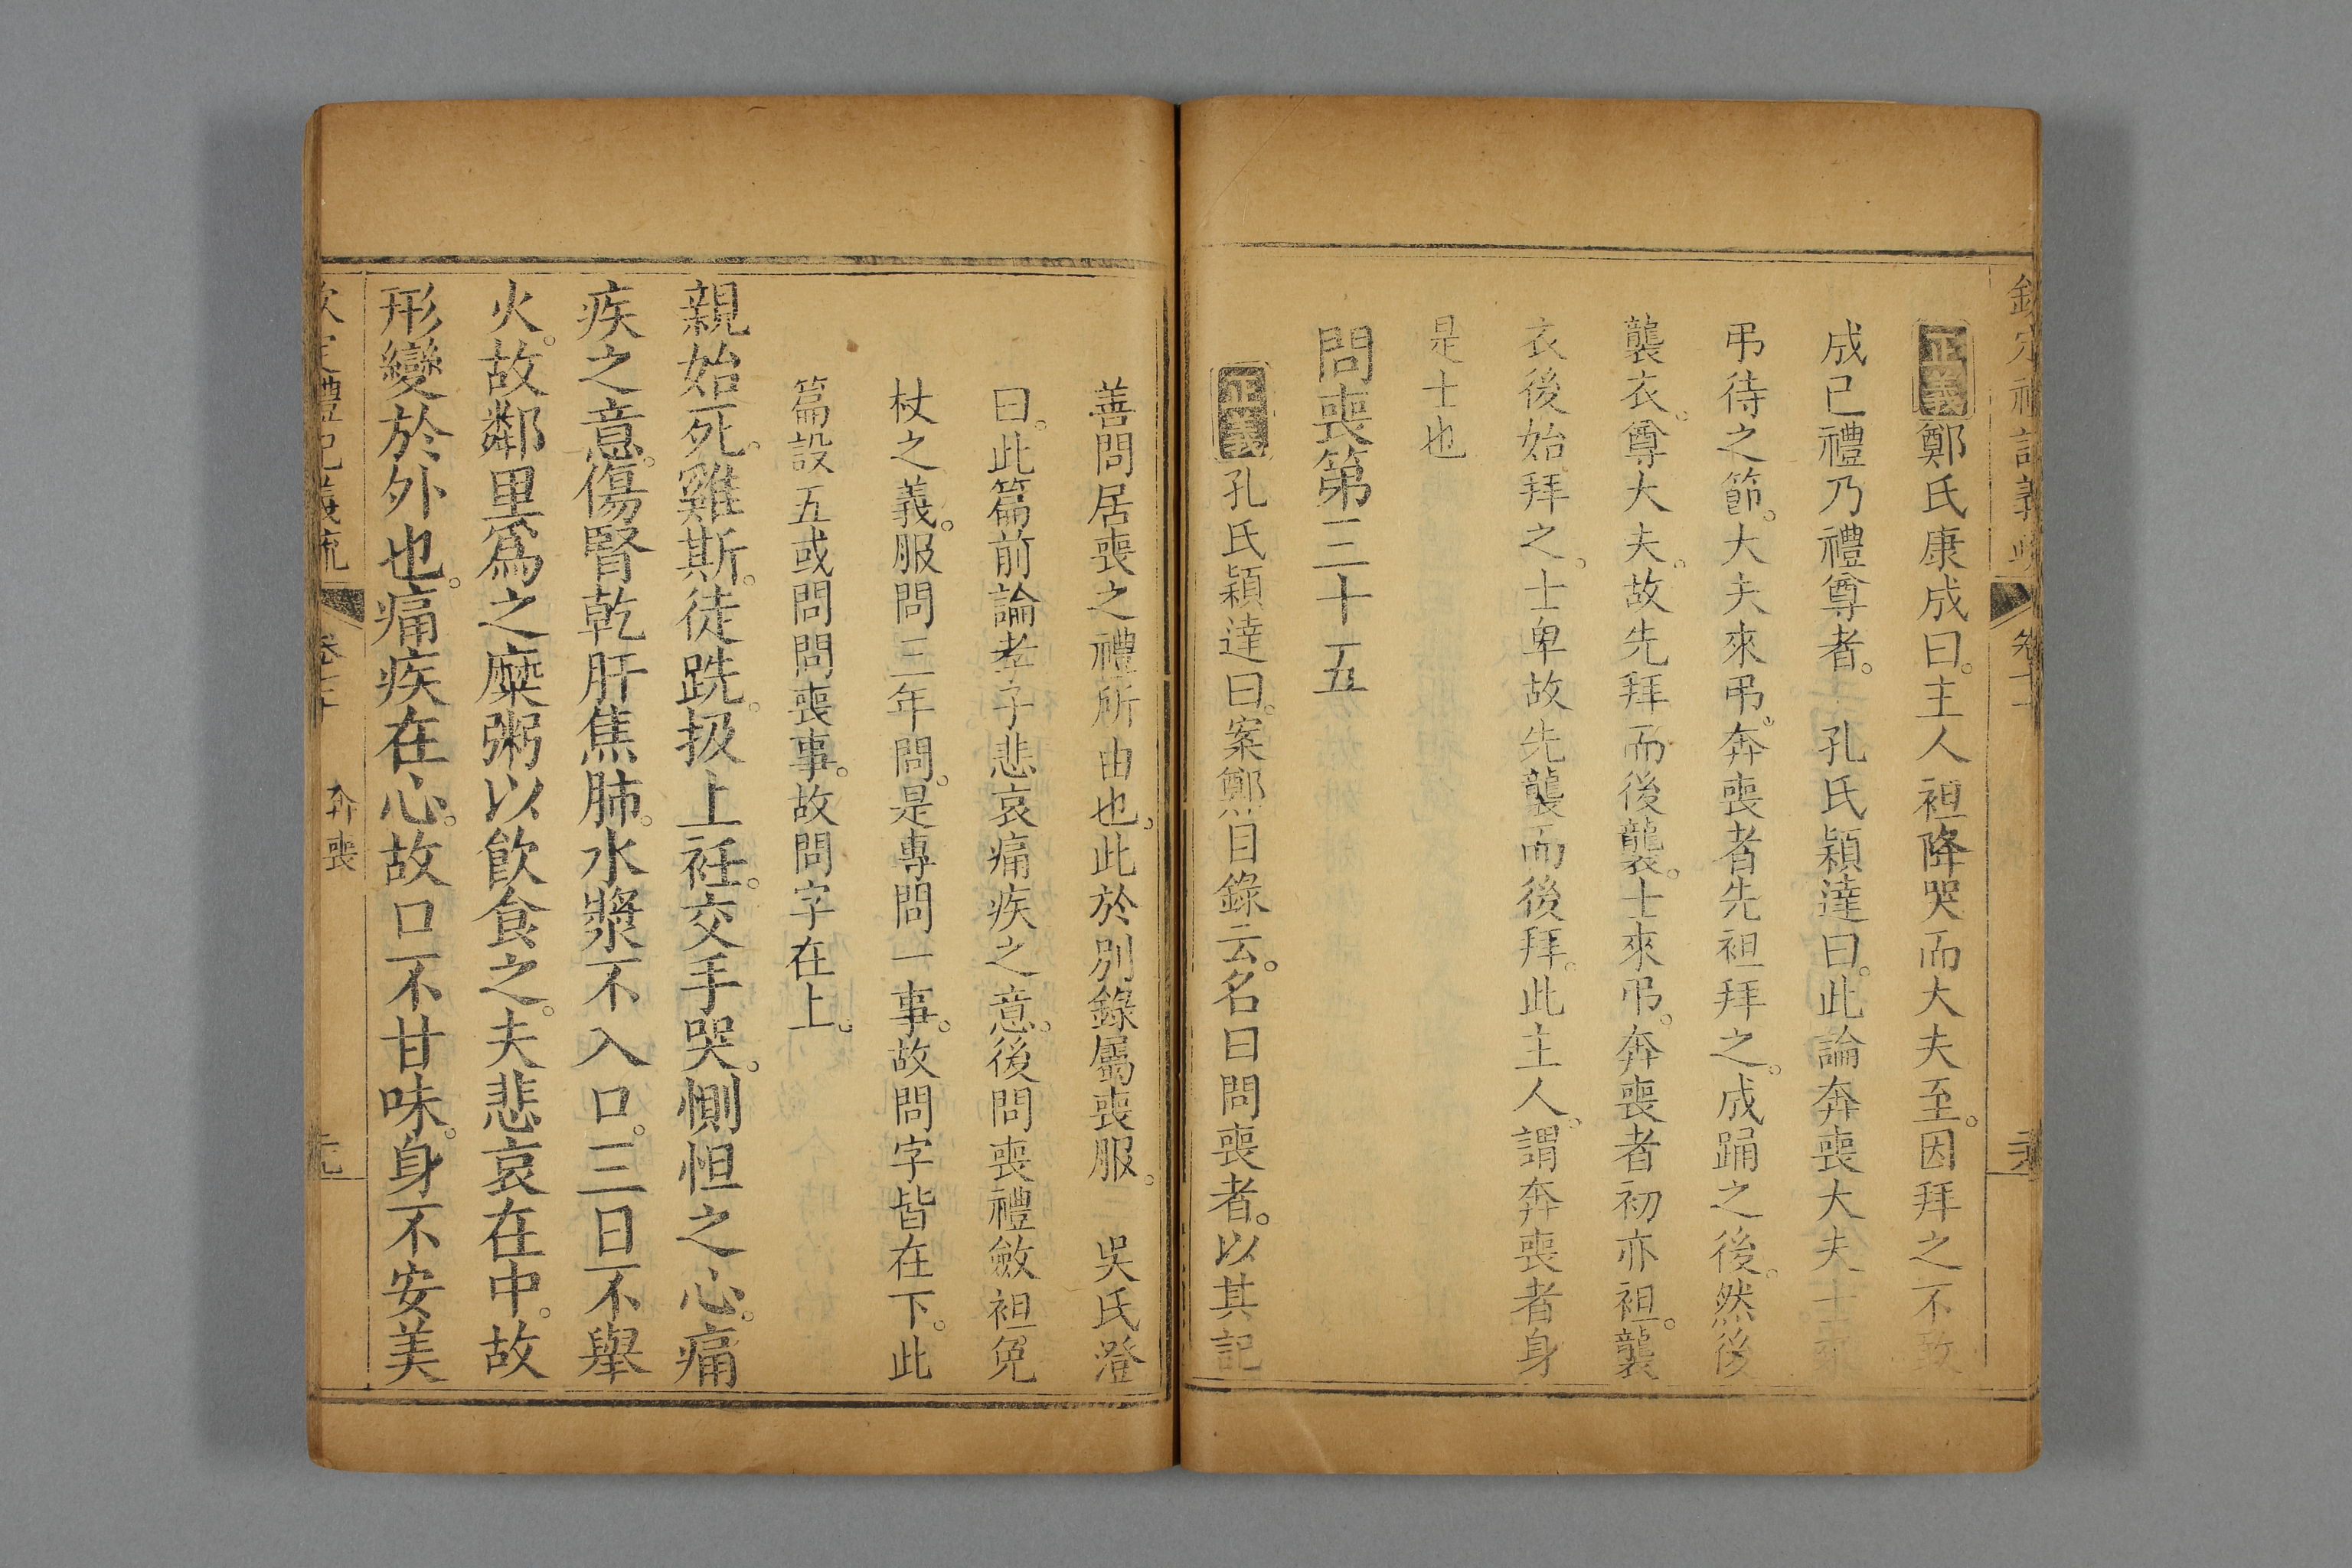 正義鄭氏康成曰。主人袒降哭而大夫至。因拜之不敢
成已禮乃禮尊者。孔氏穎達曰。此論奔喪大夫士來
弔待之節。大夫來弔。奔喪者先袒拜之。成踊之後。然後
襲衣。尊大夫。故先拜而後襲。士來弔。奔喪者初亦袒。襲
衣後始拜之。士卑故先襲而後拜。此主人。謂奔喪者身
是士也
問喪第三十五
正義孔氏穎達曰。案鄭目錄云。名曰問喪者。以其記
善問居喪之禮所由也。此於別錄屬喪服。吳氏澄
曰。此篇前論孝子悲哀痛疾之意。後問喪禮斂袒免
杖之義。服問三年問。是專問一事。故問字皆在下。此
篇設五或問問喪事。故問字在上。
親始死。雞斯。徒跣。扱上衽。交手哭。惻怛之心。痛
疾之意。傷腎乾肝焦肺。水漿不入口。三日不舉
火。故鄰里爲之糜粥以飮食之。夫悲哀在中。故
形變於外也。痛疾在心。故口不甘味。身不安美
奔喪